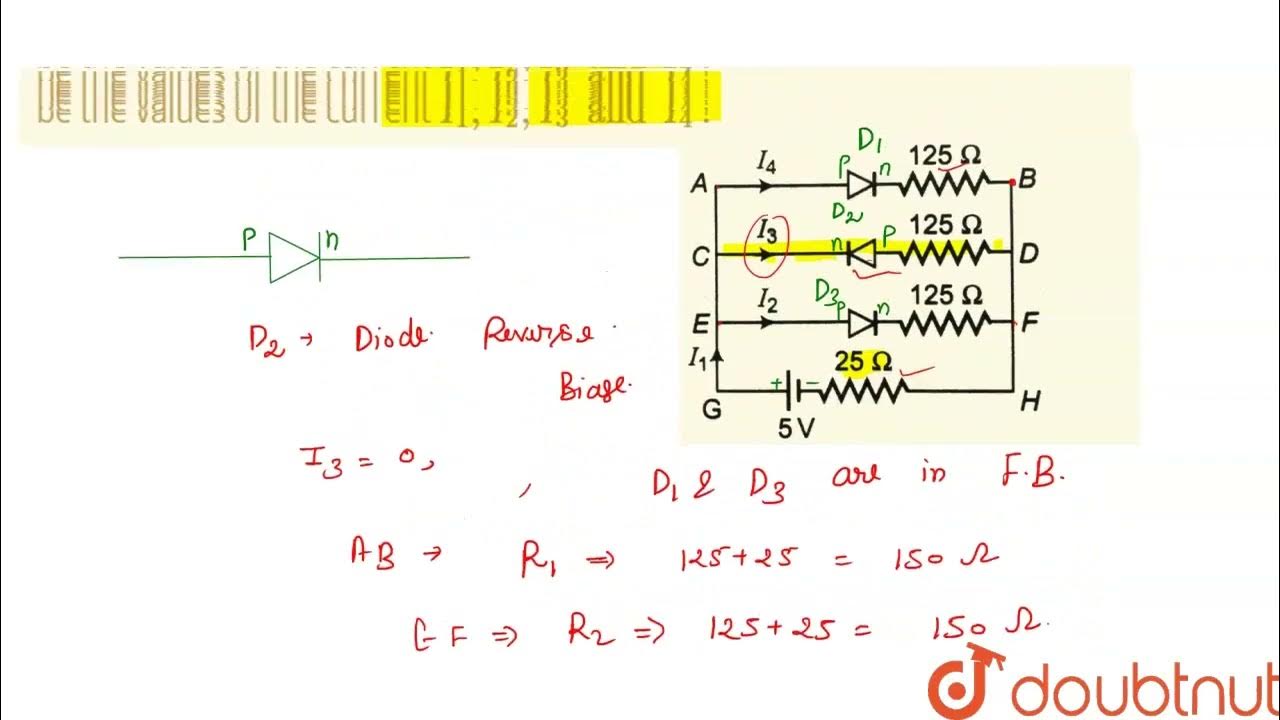 be the values of the current I1, I2, I3 and I4?
D1
I4 p n 125 Ω
A B
D2
I3 n p 125 Ω
C D
D3
I2 p n 125 Ω
E F
I1 25 Ω
+ −
G H
5 V
p n
D2 → Diode Reverse
Biase.
I3 = 0,
, D1 & D3 are in F.B.
AB → R1 ⇒ 125+25 = 150 Ω
EF ⇒ R2 ⇒ 125+25 = 150 Ω.
doubtnut